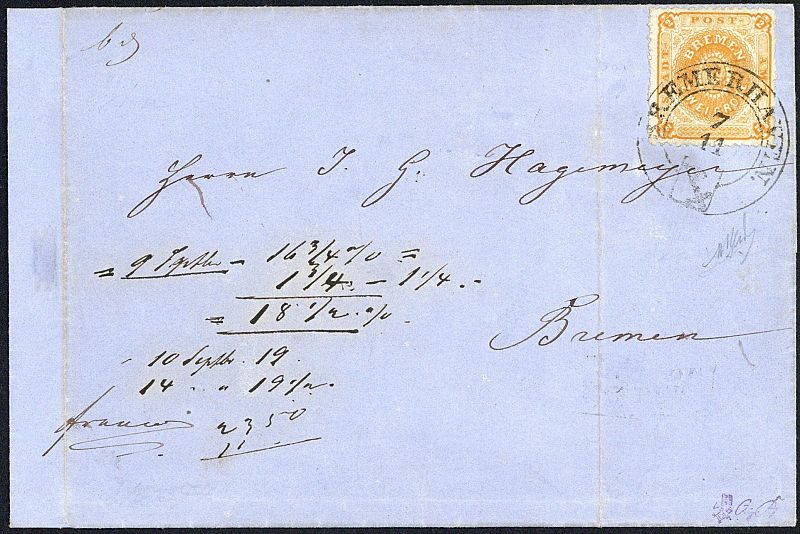 POST
BREMEN
BREMERHAVEN
7
11
Herrn J. G. Hagemeyer
= 9 Septbr - 16 3/4 % =
1 3/4 - 1 1/4 . -
= 18 1/2 . %
Bremen
10 Septbr. 19.
14 " " 19 1/2 .
franco
23 50